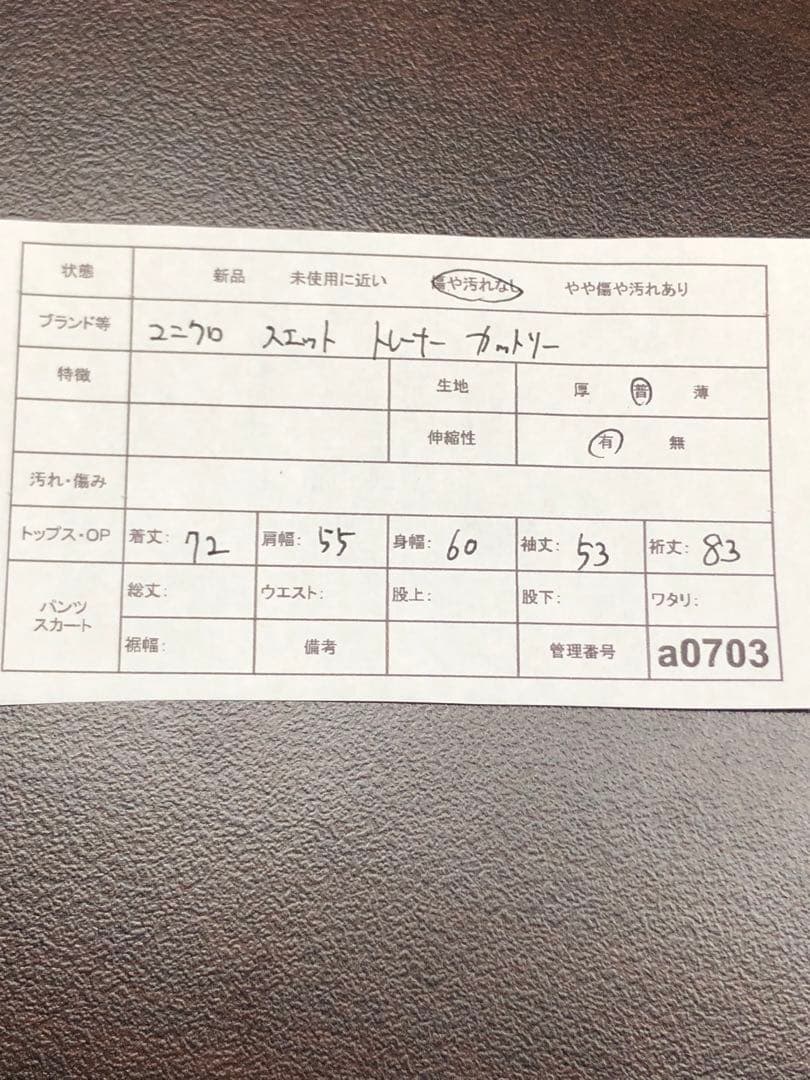 状態 新品 未使用に近い 傷や汚れなし やや傷や汚れあり
ブランド等 ユニクロ スエット トレーナー カットソー
特徴 生地 厚 普 薄
伸縮性 有 無
汚れ・傷み
トップス・OP 着丈: 72 肩幅: 55 身幅: 60 袖丈: 53 裄丈: 83
パンツ スカート 総丈: ウエスト: 股上: 股下: ワタリ:
裾幅: 備考 管理番号 a0703